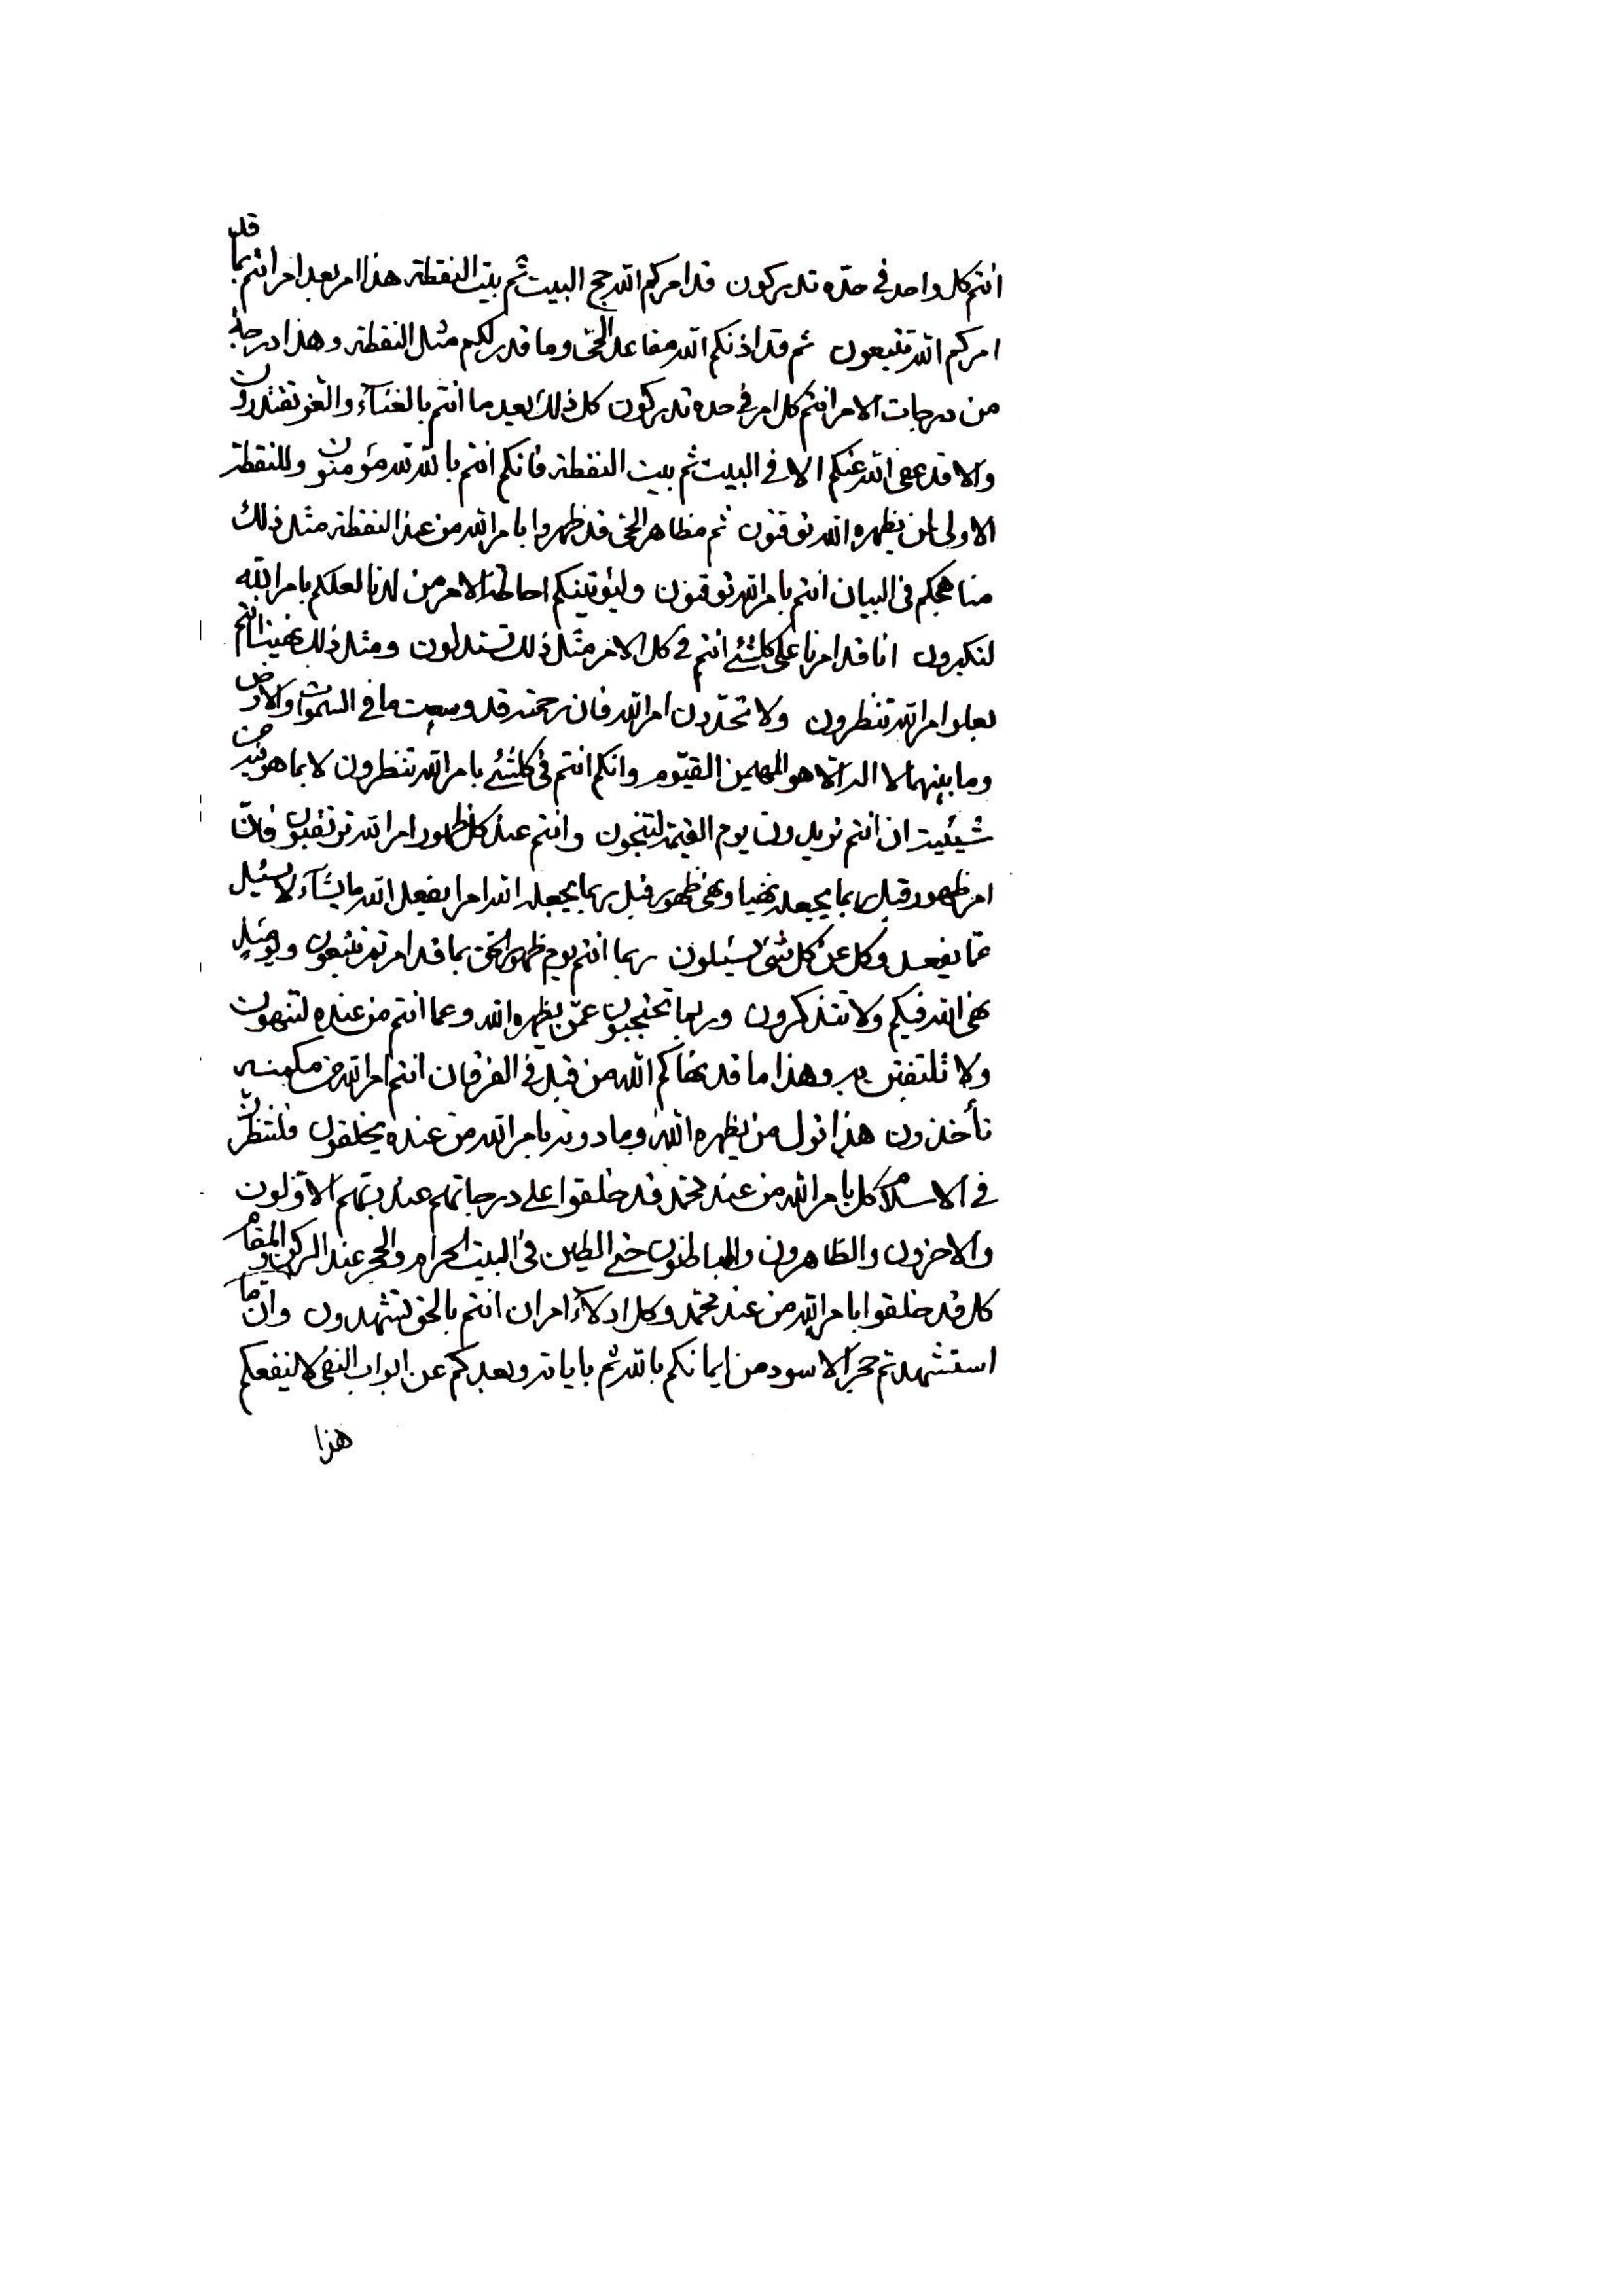 انتم كل واحد في حده تدركون قد امركم الله حج البيت ثم بيت النقطة هذا امر بعد امر انتم بما قد
امركم الله تتبعون ثم قد اذنكم الله مقاعد الحي وما قدر لكم مثل النقطة وهذا درجة
من درجات الامر انتم كل امر في حده تدركون كل ذلك بعد ما انتم بالغنآء والعز تقتدرون
والا قد عفى الله عنكم الا في البيت ثم بيت النقطة فانكم انتم بالله تؤمنون وللنقطة
الاولى لمن يظهره الله توقنون ثم مظاهر الحي قد ظهروا بامر الله من عند النقطة مثل ذلك
مناهجكم في البيان انتم بامر الله توقنون وليؤتينكم احاطة الامر من لدنا لعلكم بامر الله
لتكبرون انا قد امرنا على كلشئ انتم في كل الامر مثل ذلك تستدلون ومثل ذلك نهينا انتم
بعلو امر الله تنظرون ولا تحددن امر الله فان رحمته قد وسعت ما في السموات والارض
وما بينهما لا اله الا هو المهيمن القيوم وانكم انتم في كلشئ بامر الله تنظرون لا بما هو فيه من
شيئية ان انتم تريدون يوم القيمة لتنجون وانتم عند كل ظهور امر الله ترتقبون فان
امر ظهور قبل ربما يجعله نهيا ونهي ظهور قبل ربما يجعله الله امرا يفعل الله ما يشآء لا يسئل
عما يفعل وكل عن كل شئ يسئلون ربما انتم يوم ظهور الحق بما قد امرتم تتبعون ويومئذ
نهى الله فيكم ولا تتذكرون وربما تحتجبون عمن يظهره الله وعما انتم من عنده لتنهون
ولا تلتفتن به وهذا ما قد نهاكم الله من قبل في الفرقان انتم امر الله من مكمنه
تأخذون هذا اول من يظهره الله وما دونه بامر الله من عنده يخلقون فلتنظرن
في الاسلام كل بامر الله من عند محمد قد خلقوا على درجاتهم عند ربهم الاولون
والاخرون والظاهرون والباطنون حتى الطين في البيت الحرام والحجر عند الركن والمقام
كل قد خلقوا بامر الله من عند محمد وكل ادلآء امر ان انتم بالحق لتشهدون وان ما
استشهدتم حجر الاسود من ايمانكم بالله ثم باياته وبعدكم عن ابواب النفي لا ينفعكم
هذا